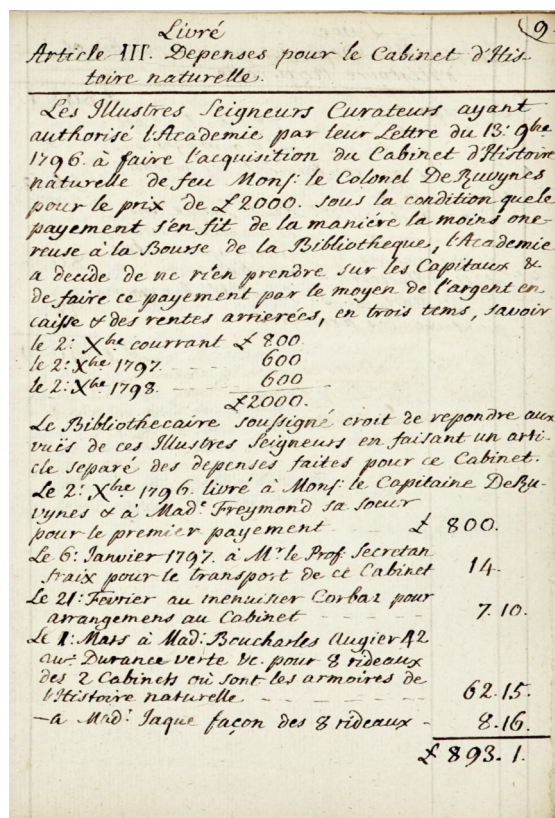 9
Livré
Article III. Depenses pour le Cabinet d'His-
toire naturelle.
Les Illustres Seigneurs Curateurs ayant
authorisé l'Academie par leur Lettre du 13: 9bre
1796. à faire l'acquisition du Cabinet d'Histoire
naturelle de feu Monsr: le Colonel DeRuvynes
pour le prix de £2000. sous la condition que le
payement s'en fit de la maniére la moins one-
reuse à la Bourse de la Bibliotheque, l'Academie
a decidé de ne rien prendre sur les Capitaux &
de faire ce payement par le moyen de l'argent en
caisse & des rentes arrierées, en trois tems, savoir
le 2: Xbre courrant £ 800.
le 2: Xbre 1797. 600
le 2: Xbre 1798. 600
£2000.
Le Bibliothecaire soussigné croit de repondre aux
vuës de ces Illustres Seigneurs en faisant un arti-
cle separé des depenses faites pour ce Cabinet.
Le 2: Xbre 1796. livré à Monsr: le Capitaine DeRu-
vynes & à Made: Freymond sa soeur
pour le premier payement £ 800.
Le 6: Janvier 1797. à Mr. le Prof. Secretan
fraix pour le transport de ce Cabinet 14.
Le 21: Fevrier au menuisier Corbaz pour
arrangemens au Cabinet 7.10.
Le 1: Mars à Mad: Boucharles Augier 42
au: Durance verte &c. pour 8 rideaux
des 2 Cabinets où sont les armoires de
l'Histoire naturelle 62.15.
- a Made: Jaque façon des 8 rideaux - 8.16.
£ 893. 1.